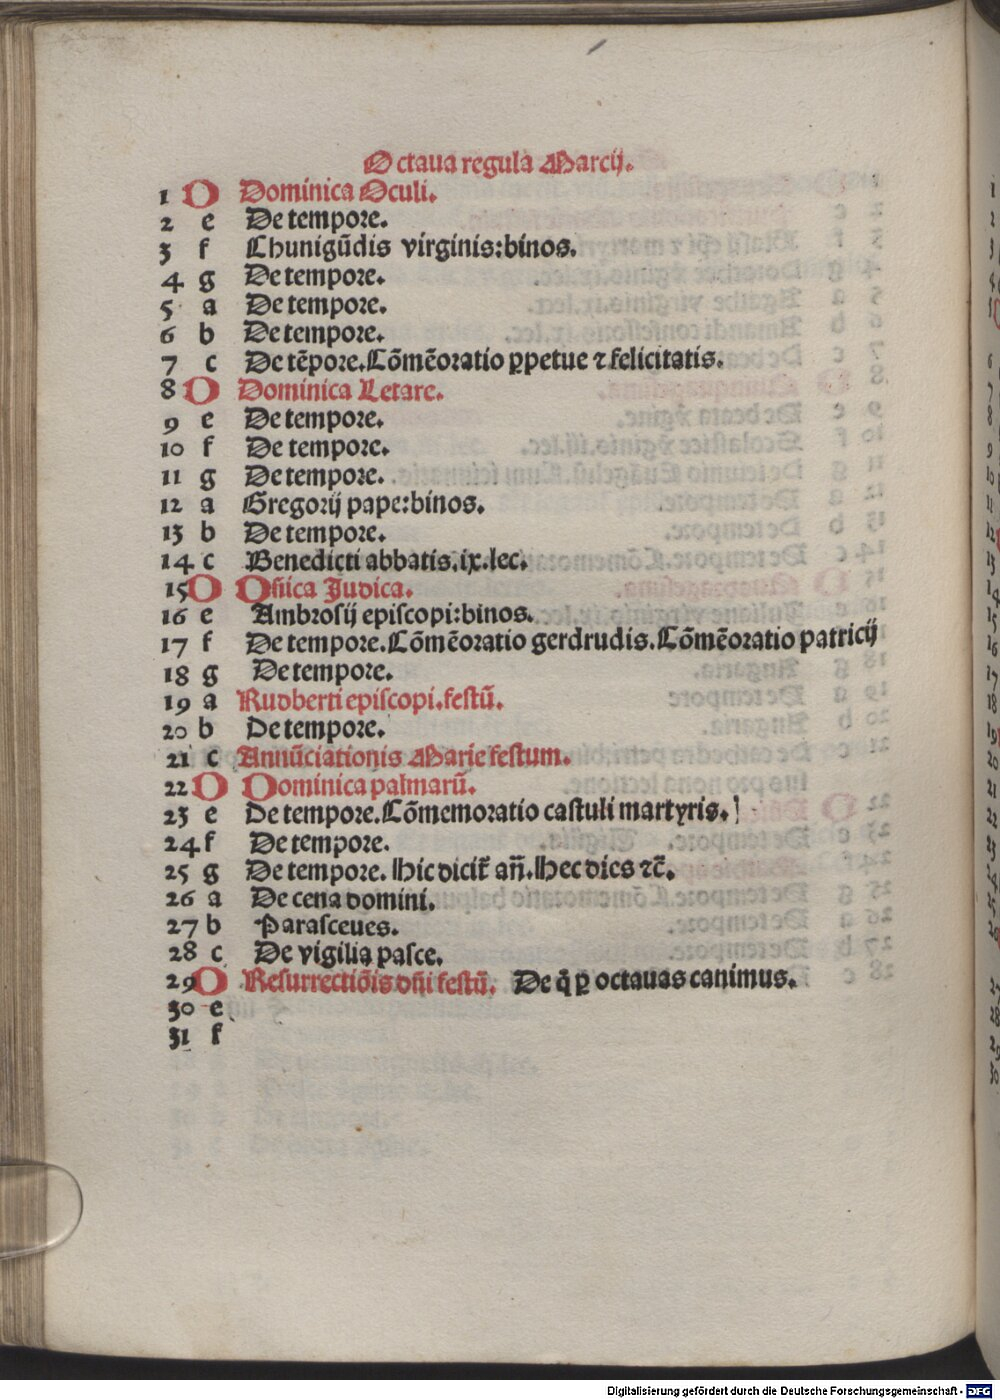 Octaua regula Marcij.
1 D Dominica Oculi.
2 e De tempore.
3 f Chunigūdis virginis:binos.
4 g De tempore.
5 a De tempore.
6 b De tempore.
7 c De tēpore.Cōmēoratio ꝑpetue ⁊ felicitatis.
8 D Dominica Letare.
9 e De tempore.
10 f De tempore.
11 g De tempore.
12 a Gregorij pape:binos.
13 b De tempore.
14 c Benedicti abbatis.ix.lec.
15 D Dñica Judica.
16 e Ambrosij episcopi:binos.
17 f De tempore.Cōmēoratio gerdrudis.Cōmēoratio patricij
18 g De tempore.
19 a Rudberti episcopi.festū.
20 b De tempore.
21 c Annūciationis Marie festum.
22 D Dominica palmarū.
23 e De tempore.Cōmemoratio castuli martyris.
24 f De tempore.
25 g De tempore. Hic dicit̄ añ.Hec dies ⁊c̄.
26 a De cena domini.
27 b Parasceues.
28 c De vigilia pasce.
29 D Resurrectiōis dñi festū. De q̄ ꝑ octauas canimus.
30 e
31 f
Digitalisierung gefördert durch die Deutsche Forschungsgemeinschaft - DFG